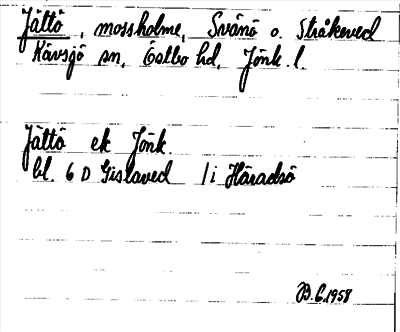 Jättö, mossholme, Svänö o. Stråkeved
Kävsjö sn, Östbo hd, Jönk. l.
Jättö ek Jönk.
bl. 6 D Gislaved 1 i Häradsö
B.G.1958